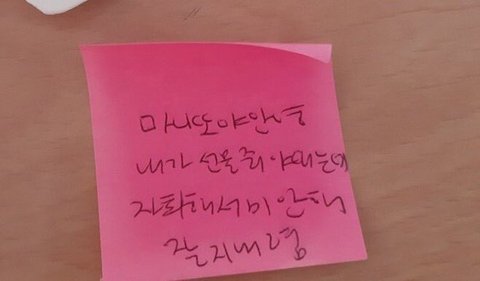 마니또야안녕
내가 선물줘야되는데
자꾸해서미안해
잘지내렴